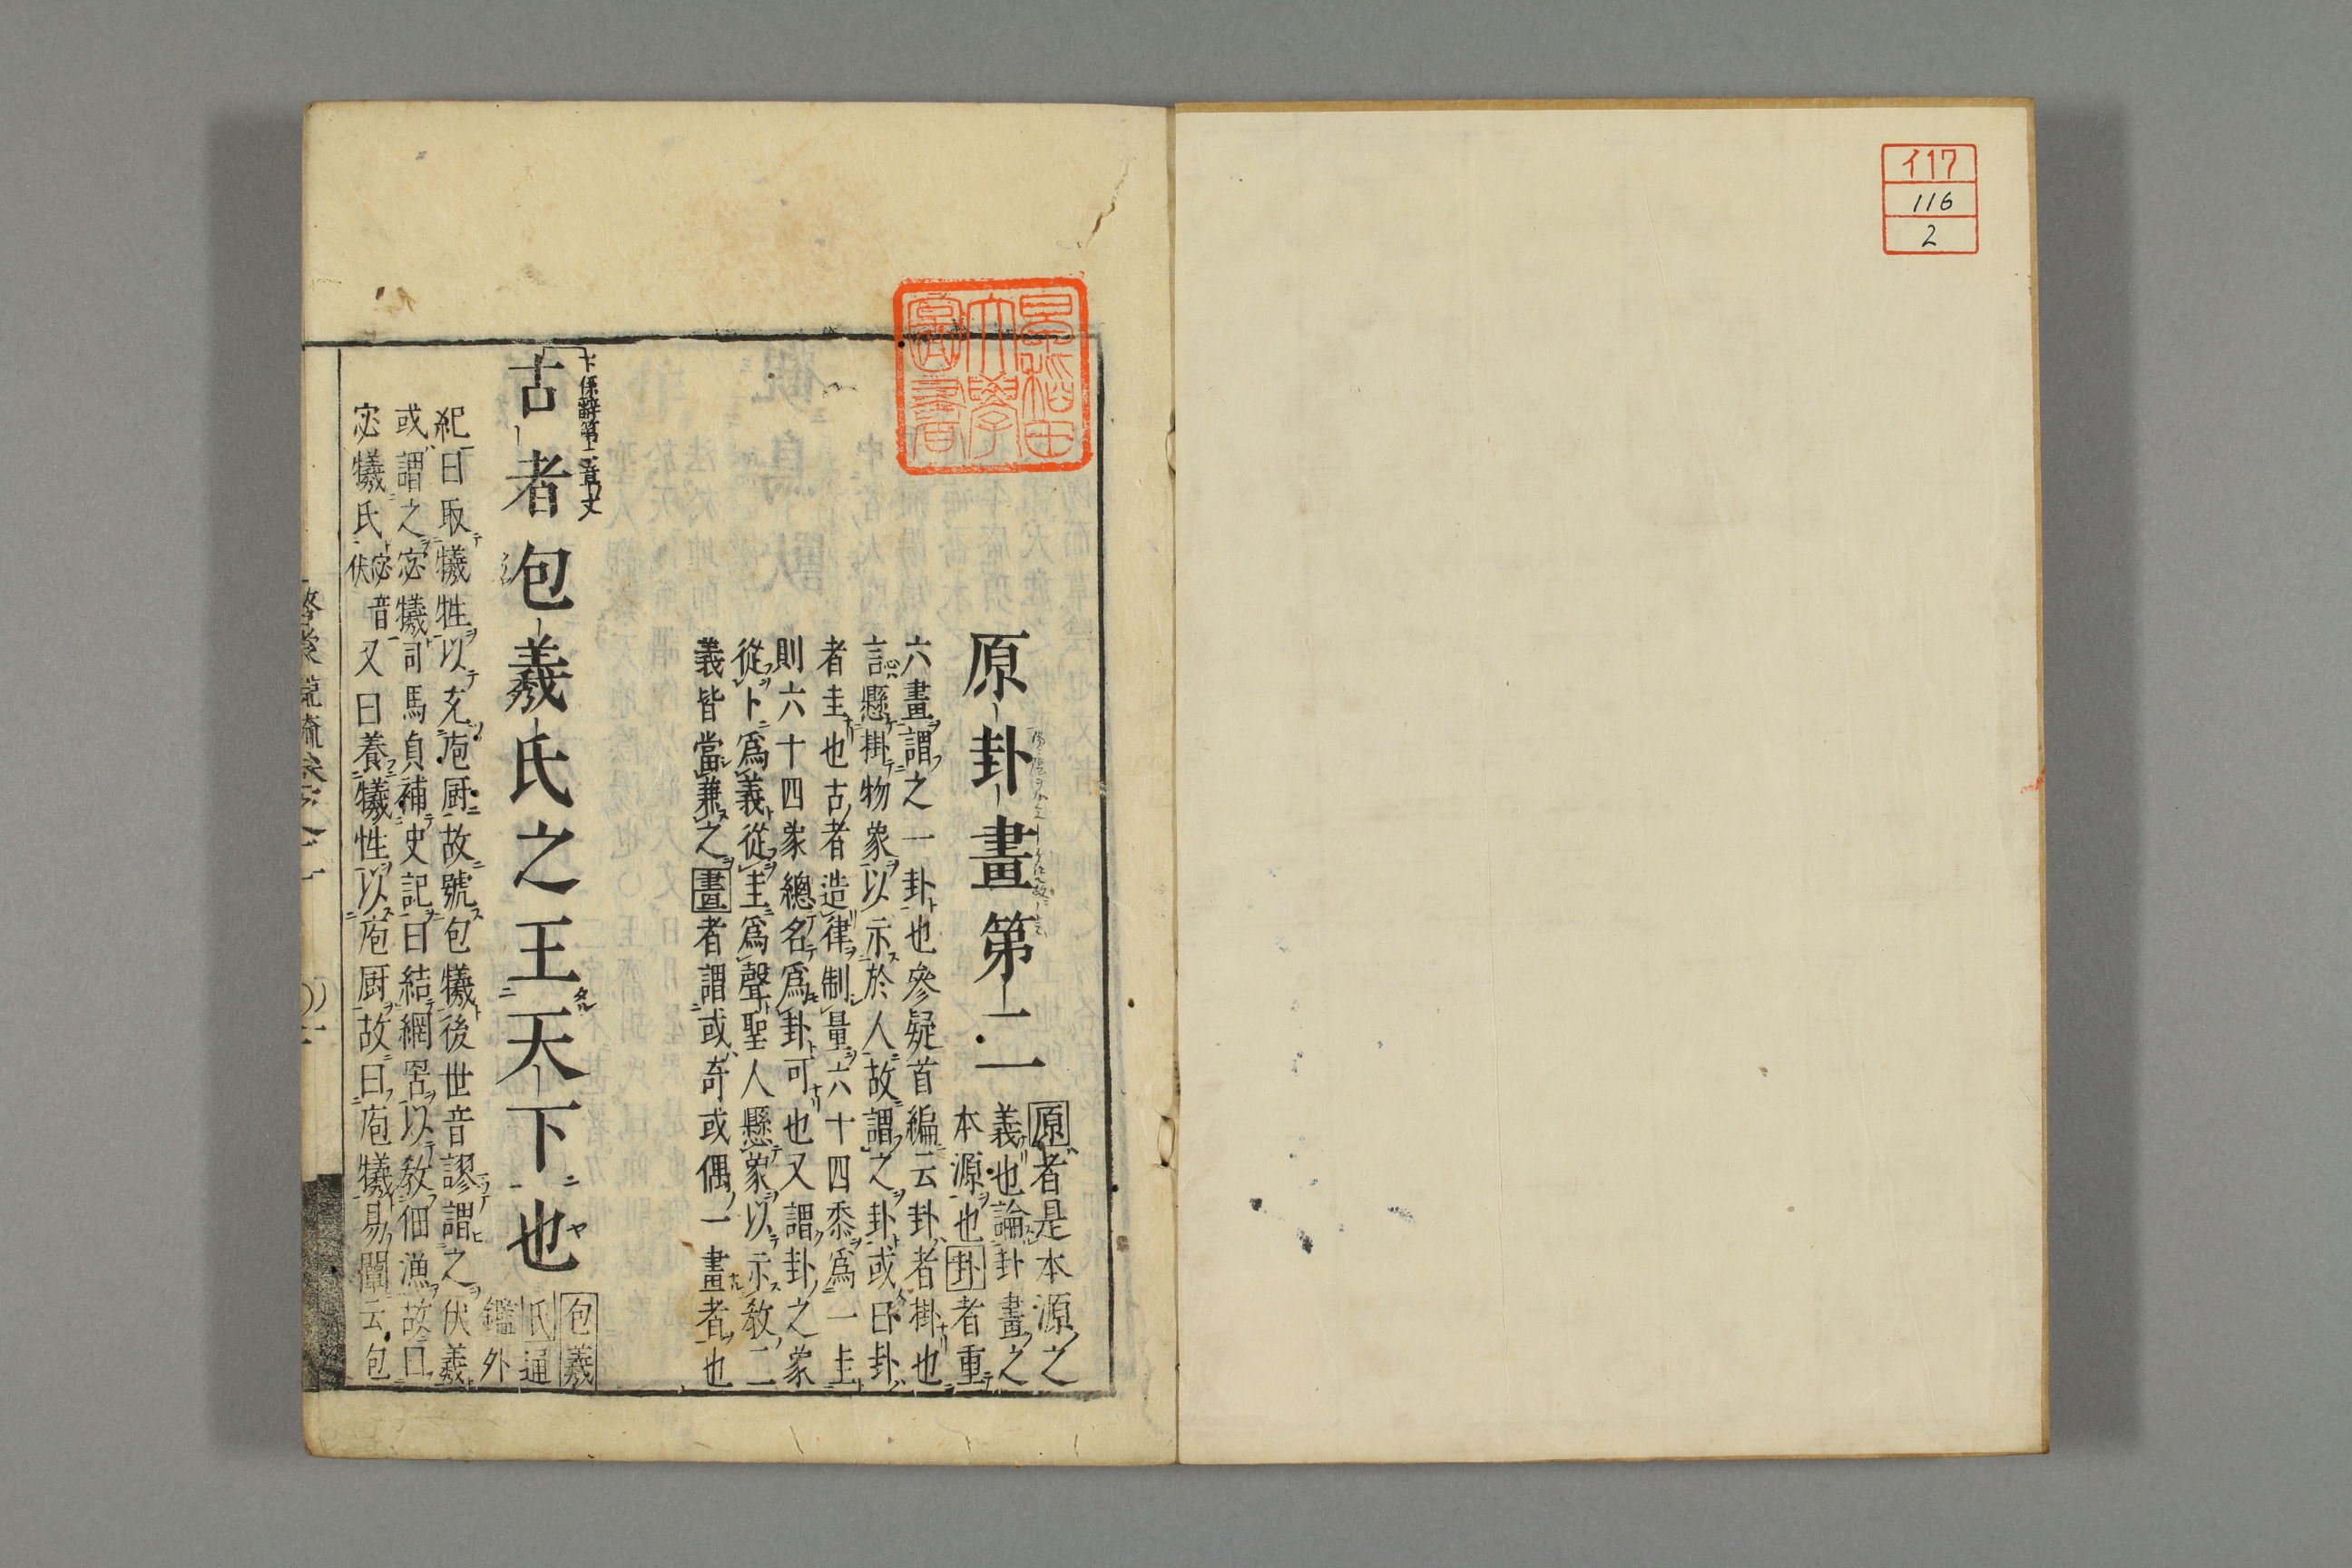 イ17
116
2
早稲田
大學
圖書
原卦畫第二
原者是本源之
義也論卦畫之
本源也卦者重
六畫謂之一卦也參疑首編云卦者掛也
言懸掛物象以示於人故謂之卦或曰卦
者圭也古者造律制量六十四黍爲一圭
則六十四象總名爲卦可也又謂卦之象
從卜爲義從圭爲聲聖人懸象以示教二
義皆當兼之畫者謂或奇或偶一畫者也
下係辭第二章文
古者包羲氏之王天下也
包羲
氏通
鑑外
紀曰取犧牲以充庖厨故號包犧後世音謬謂之伏羲
或謂之宓犧司馬貞補史記曰結網罟以教佃漁故曰
宓犧氏宓音伏又曰養犧牲以庖厨故曰庖犧易闡云包